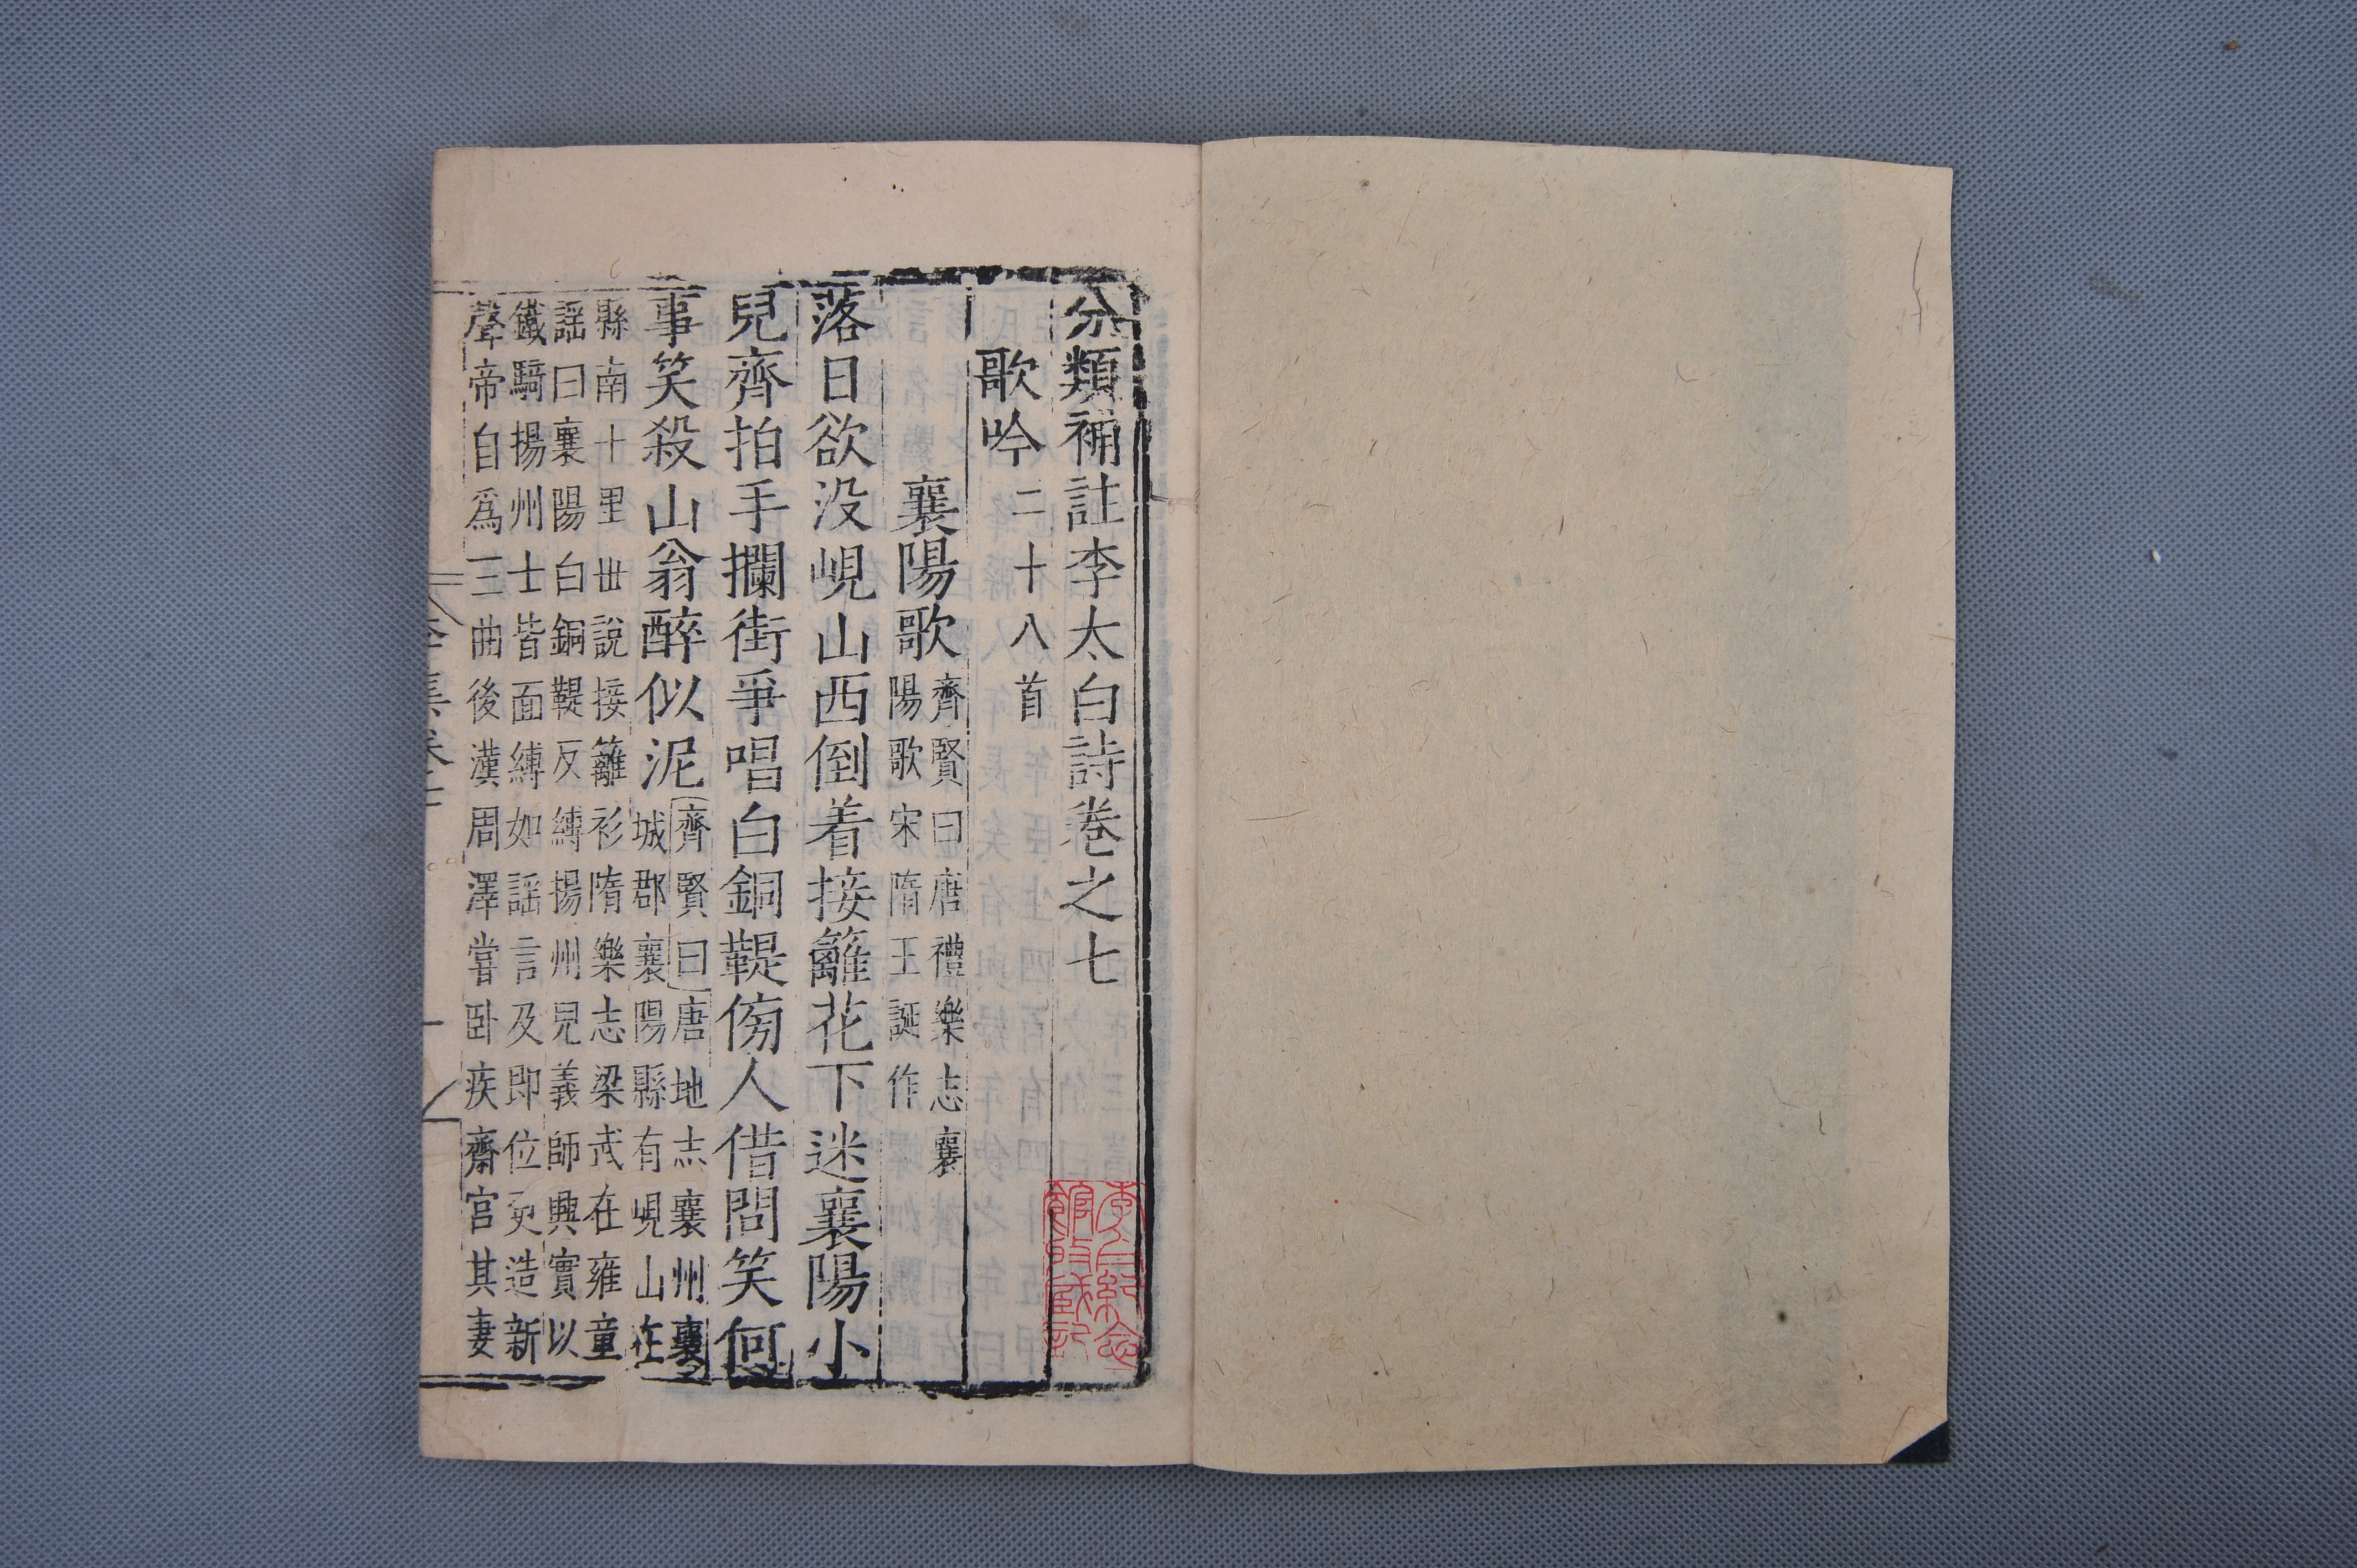 分類補註李太白詩卷之七
歌吟二十八首
襄陽歌齊賢曰唐禮樂志襄
陽歌宋隋王誕作
落日欲没峴山西倒着接籬花下迷襄陽小
兒齊拍手攔街爭唱白銅鞮傍人借問笑何
事笑殺山翁醉似泥齊賢曰唐地志襄州襄
城郡襄陽縣有峴山在
縣南十里世說接籬衫隋樂志梁武在雍童
謡曰襄陽白銅鞮反縛揚州兒義師興實以
鐵騎揚州士皆面縛如謡言及即位更造新
聲帝自為三曲後漢周澤嘗卧疾齋宮其妻